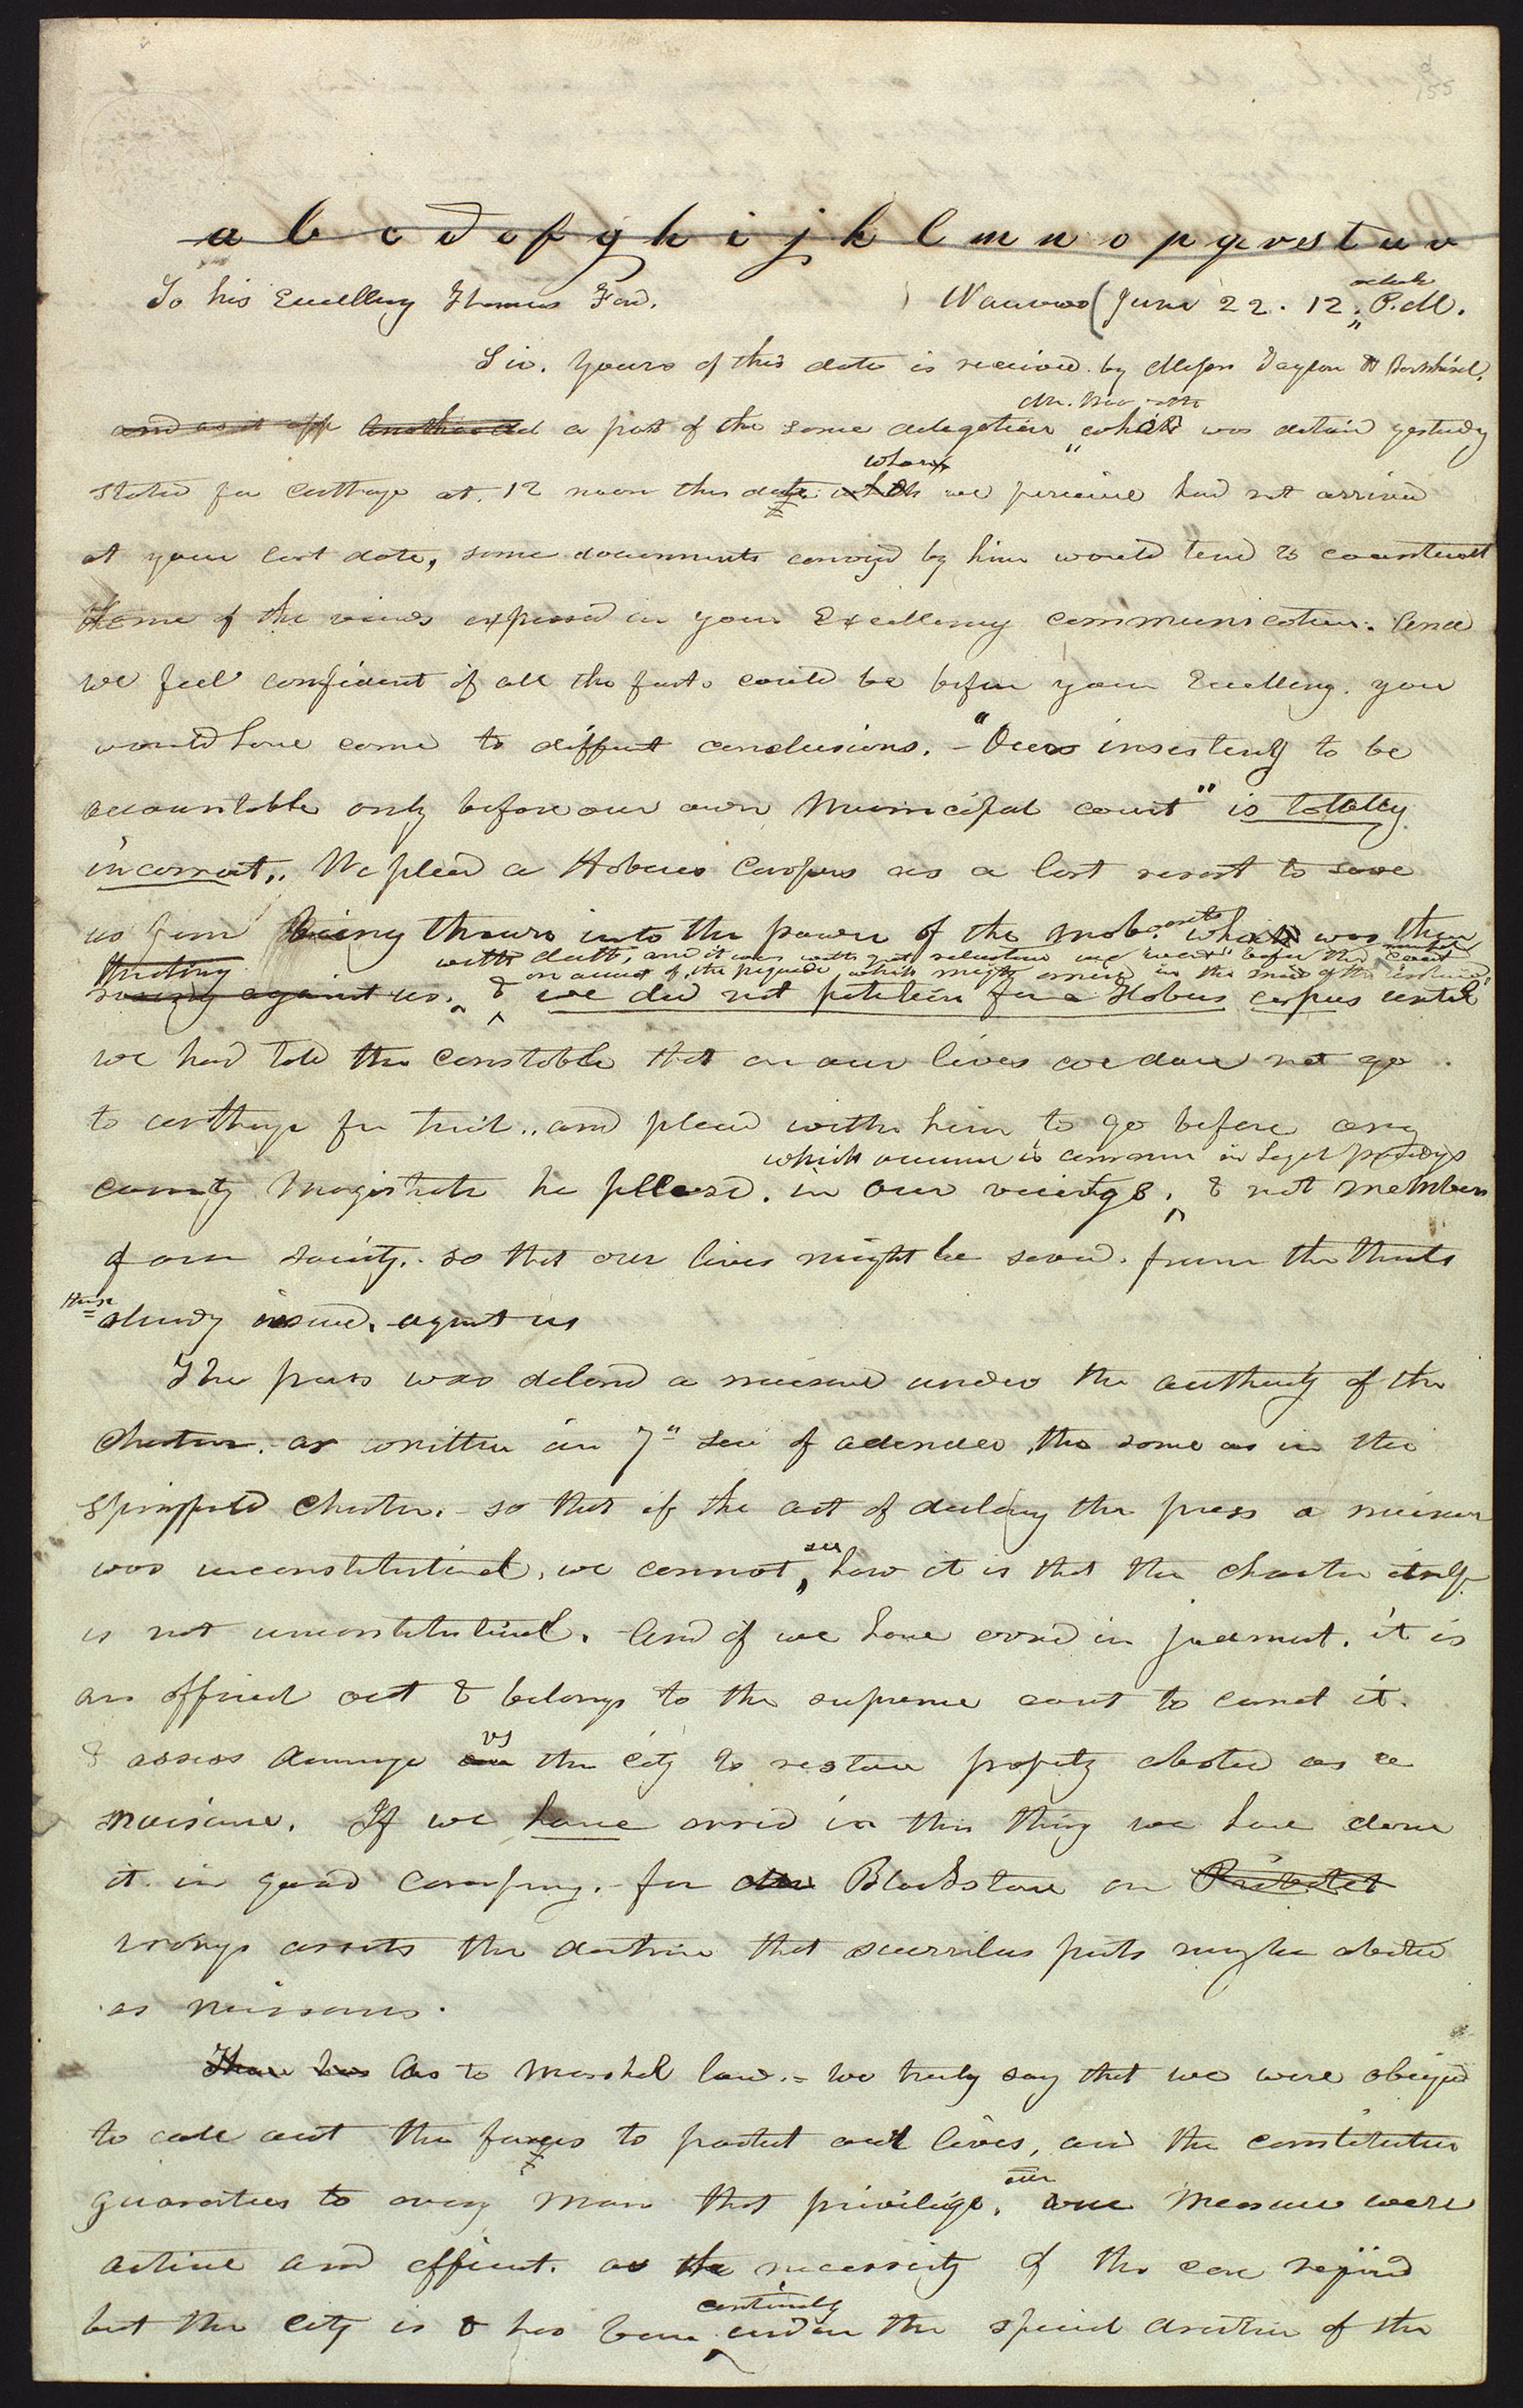 155
a b c d e f g h i j k l m n o p q r s t u v
To his Excellency Thomas Ford. Nauvoo June 22. 12 oclock P.M.
Sir. Yours of this date is received by Messrs Taylor & Bernhisel.
and as it app Another del a part of the same delegation, Dr. who was detaind yesterday
started for Carthage at 12 noon this date. who we perceive had not arrived
at your last date, some documents convyd by him would tend to counteract
some of the views expressd in your Excellency communication. And
we feel confident if all the facts could be before your Excellency. you
would have come to diffent conclusions. - "Our insisting to be
accountable only before our own Municipal court" is totally
incorrect.. We plead a Habeus Corpus as a last resort to save
us from being thrown into the power of the mob. who was then
thretning
with death, and it was with gret reluctance we went before the municipal Court
on account of the prejudice which might arise in the mind of the
rising against us. & we did not petition for a Habeus corpus until
we had told the constable that on our lives we dare not go
to carthage for trial.. and plead with him to go before any
which occurrence is common in legal procedings
county Magistrate he pleasd. in our vicinity, & not members
of our society. so that our lives might be saved. from the threats
thus already issued. against us
The press was declared a nuisance under the authority of the
Charter. as written in 7" Sec of adenda, the same as in the
Springfield Charter. - so that if the act of declaring the press a nuisance
was unconstitutional, we cannot, see how it is that the charter itself
is not unconstitutinal. And if we have erred in judment. it is
an official act & belongs to the supreme court to correct it.
& assess damage vs the city to restore property abated as a
nuisance. If we have erred in this thing we have done
it in good company. - for Blackstone on Private
wrongs asserts the doctrine that scurrilus prints may be abated
as nuisances.
There has As to Marshal law. - We truly say that we were obliged
to call out the forces to protect our lives, and the constitution
guarantees to every man that privilige, our measure were
active and efficient. as the necessity of the case requird
but the city is & has been, continualy under the special direction of the